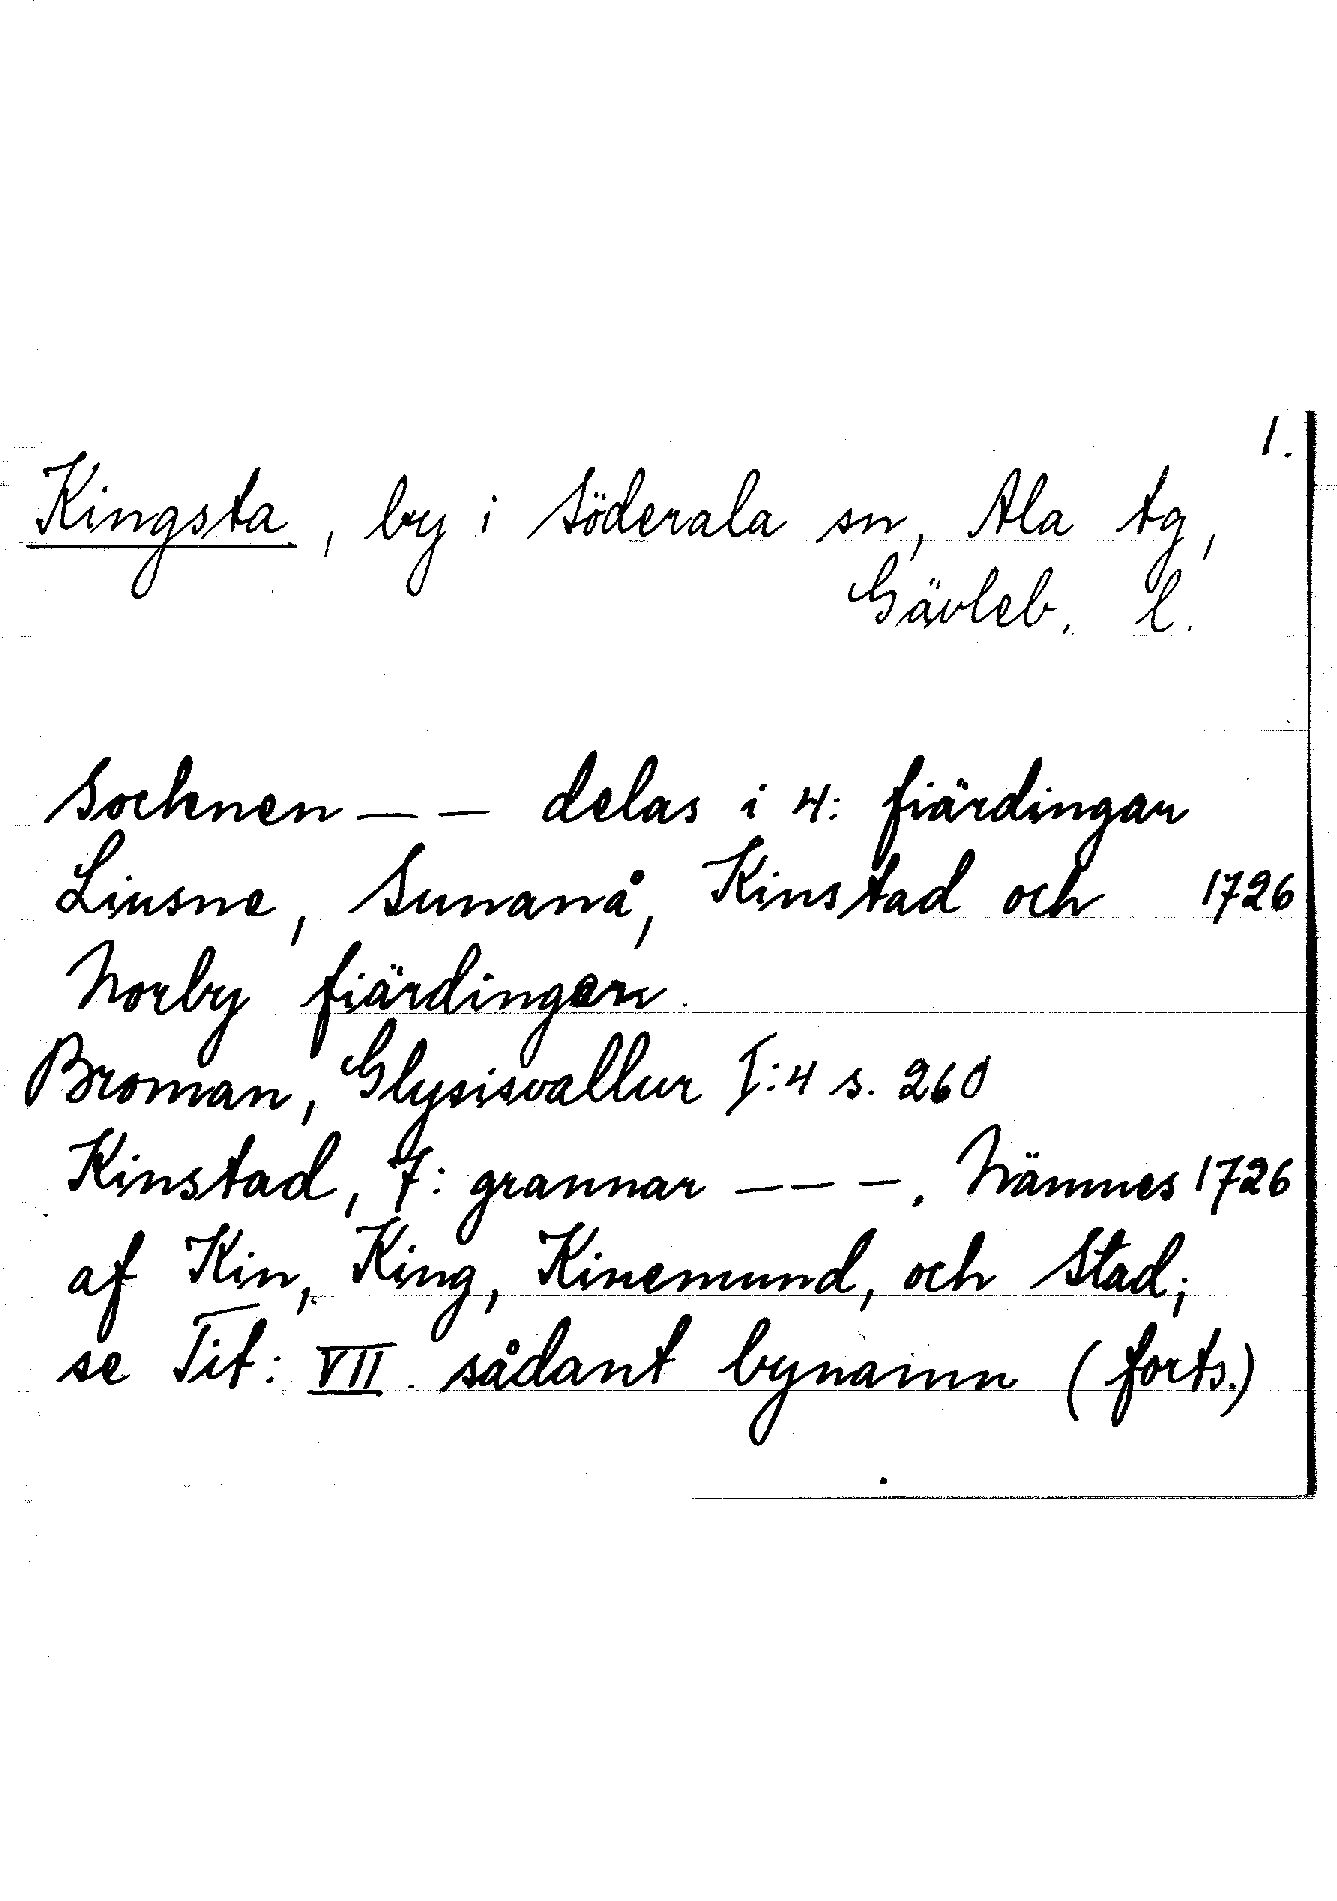 1.
Kingsta, by i Söderala sn, Ala tg,
Gävleb. l.
Socknen — — delas i 4: fiärdingar
Liusne, Sunanå, Kinstad och 1726
Norby fiärdingen.
Broman, Glysisvallur I:4 s. 260
Kinstad, 7: grannar — — —. Nämnes 1726
af Kin, King, Kinemund, och Stad;
se Tit: VII. sådant bynamn (forts.)